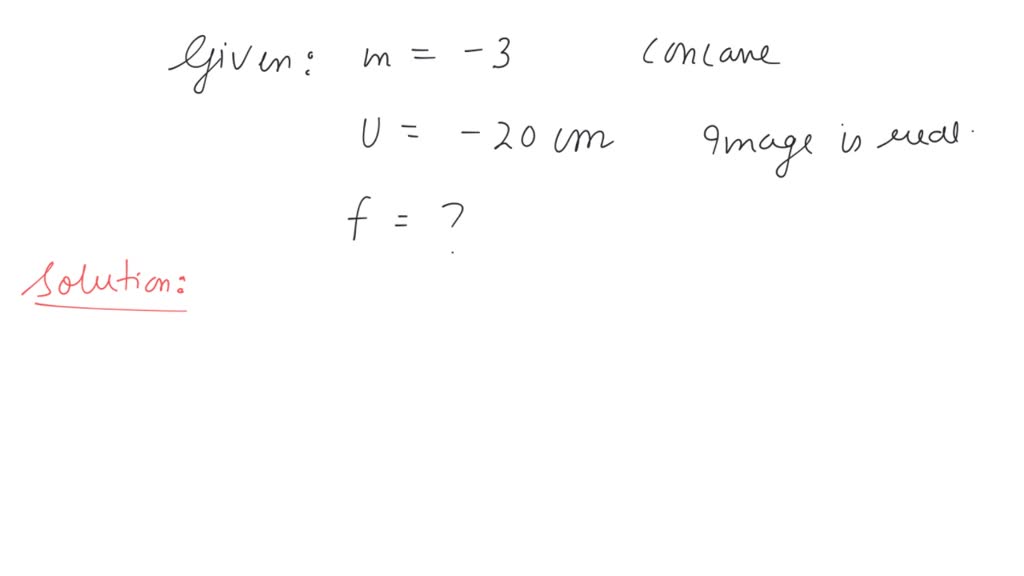 Given: m = -3 concave
U = -20 cm Image is real.
f = ?
Solution: